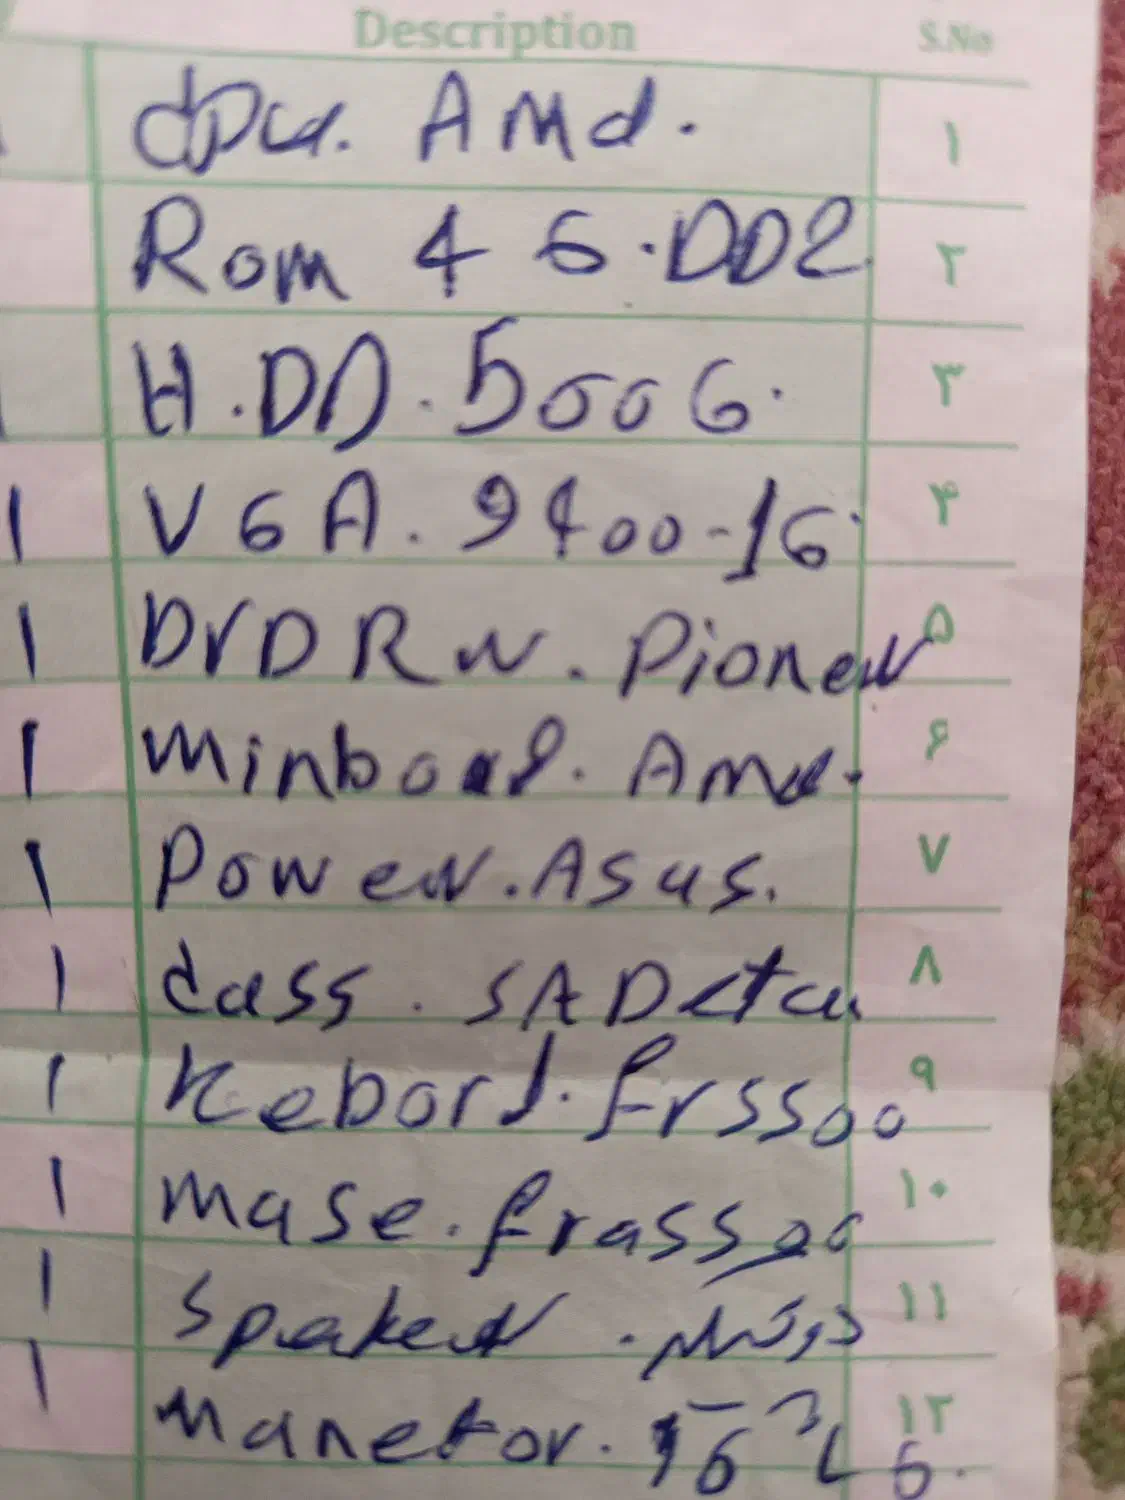 Description S.No
CPU. AMd. ۱
Rom 4 G. DD2 ۲
H.DD. 500G. ۳
VGA. 9400-1G ۴
DVDRW. Pioner ۵
Minboard. AMd. ۶
Power. Asus. ۷
Cass. SADcta ۸
Kebord. frssoo ۹
Mase. frassoo ۱۰
Speaker. ۱۱
Manetor. LG. ۱۲